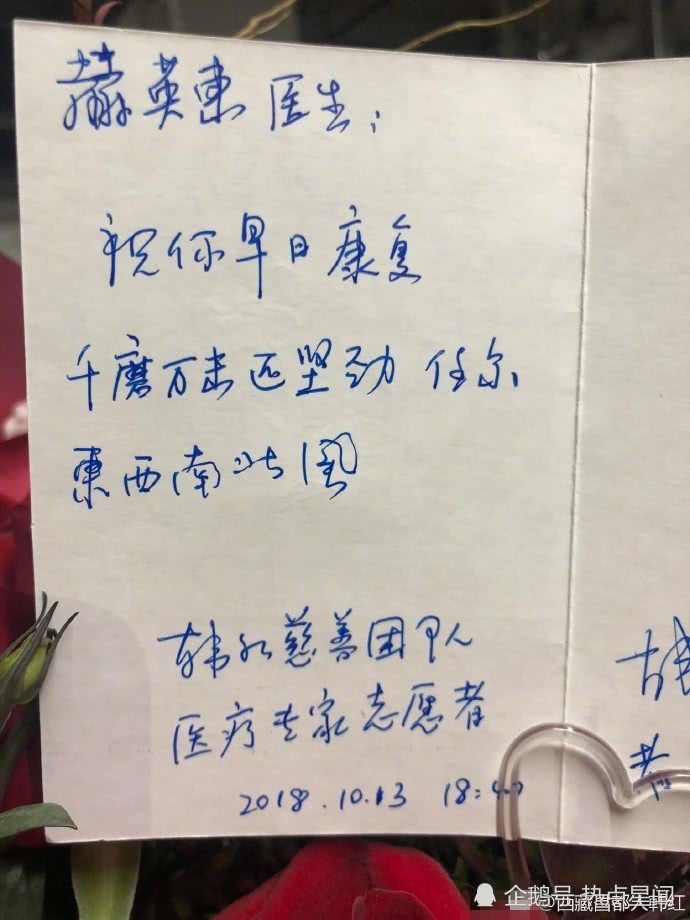 赫英東 医生：
祝你早日康复
千磨万击还坚劲 任尔
東西南北風
韩红慈善团队
医疗专家志愿者
2018.10.13 18:
企鹅号 热点星闻
@西藏昌都人韩红